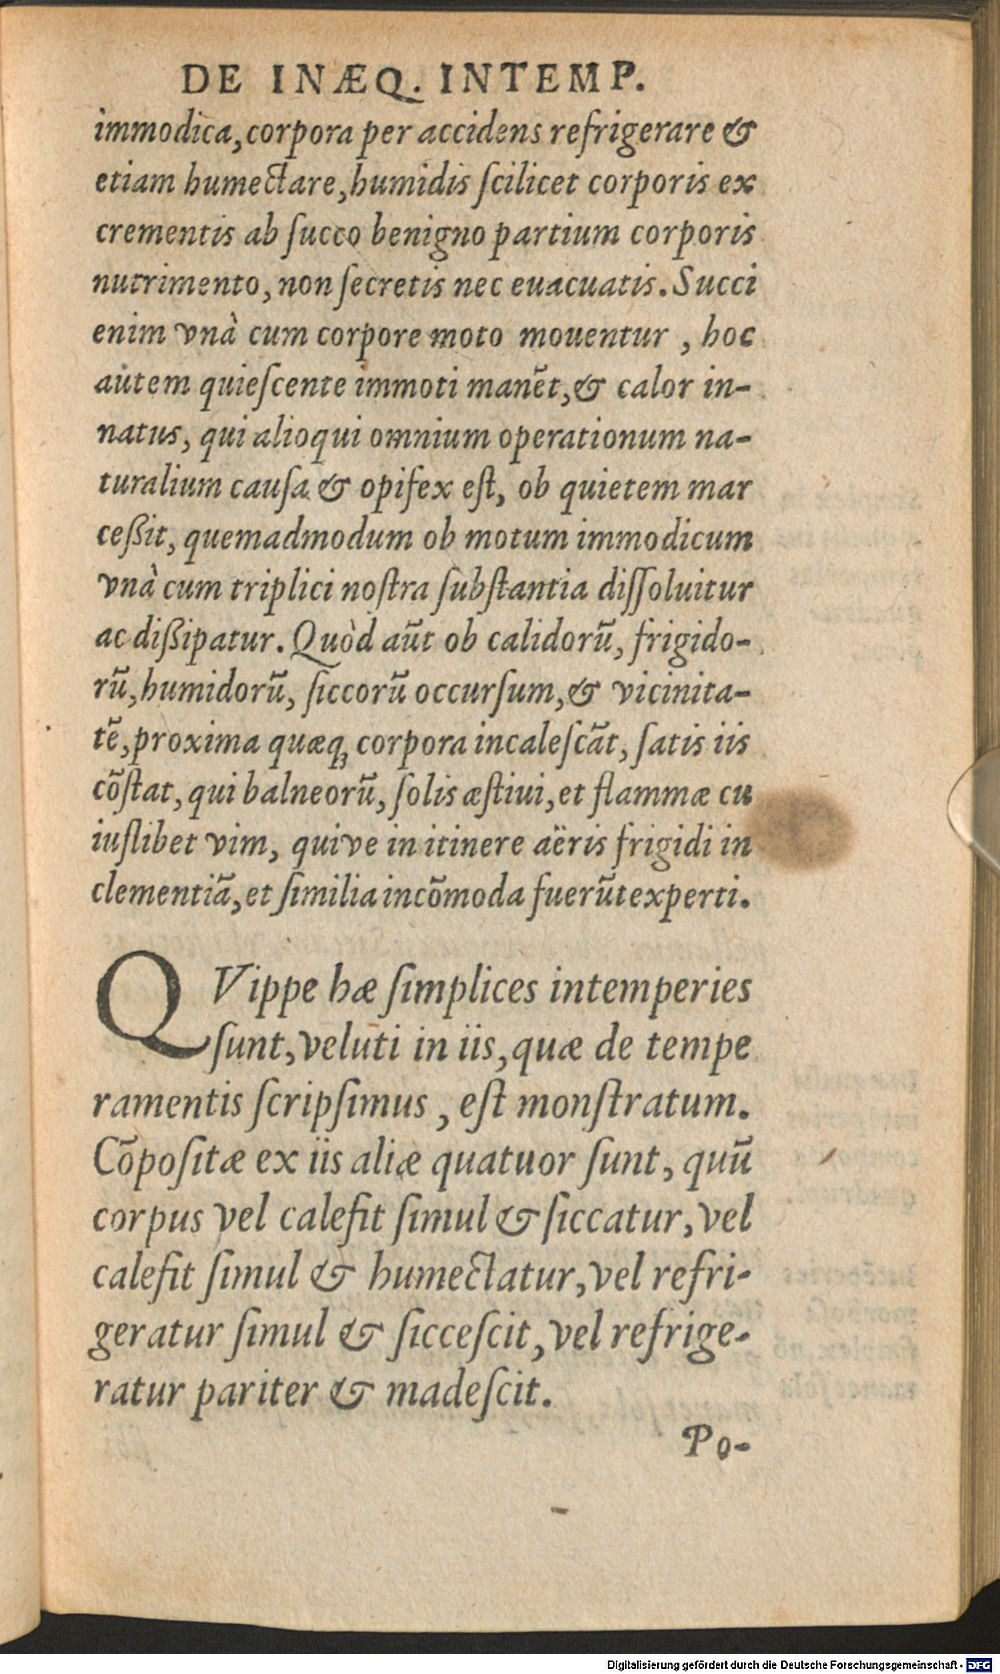 DE INÆQ. INTEMP.
immodica, corpora per accidens refrigerare &
etiam humectare, humidis ſcilicet corporis ex
crementis ab ſucco benigno partium corporis
nutrimento, non ſecretis nec euacuatis. Succi
enim vnà cum corpore moto mouentur , hoc
autem quieſcente immoti manẽt, & calor in-
natus, qui alioqui omnium operationum na-
turalium cauſa & opifex eſt, ob quietem mar
ceßit, quemadmodum ob motum immodicum
vnà cum triplici noſtra ſubſtantia diſſoluitur
ac dißipatur. Quòd aũt ob calidorũ, frigido-
rũ, humidorũ, ſiccorũ occurſum, & vicinita-
tẽ, proxima quæq; corpora incaleſcãt, ſatis iis
cõſtat, qui balneorũ, ſolis æſtiui, et flammæ cu
iuſlibet vim, quive in itinere aëris frigidi in
clementiã, et ſimilia incõmoda fuerũt experti.
QVippe hæ ſimplices intemperies
ſunt, veluti in iis, quæ de tempe
ramentis ſcripſimus , eſt monſtratum.
Cõpoſitæ ex iis aliæ quatuor ſunt, quũ
corpus vel calefit ſimul & ſiccatur, vel
calefit ſimul & humectatur, vel refri-
geratur ſimul & ſicceſcit, vel refrige-
ratur pariter & madeſcit.
Po-
Digitalisierung gefördert durch die Deutsche Forschungsgemeinschaft - DFG